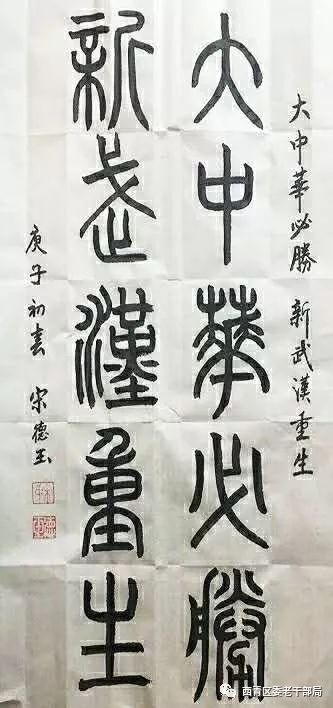 大中華必勝
新武漢重生
大中華必勝 新武漢重生
庚子初春 宋德玉
西青区委老干部局